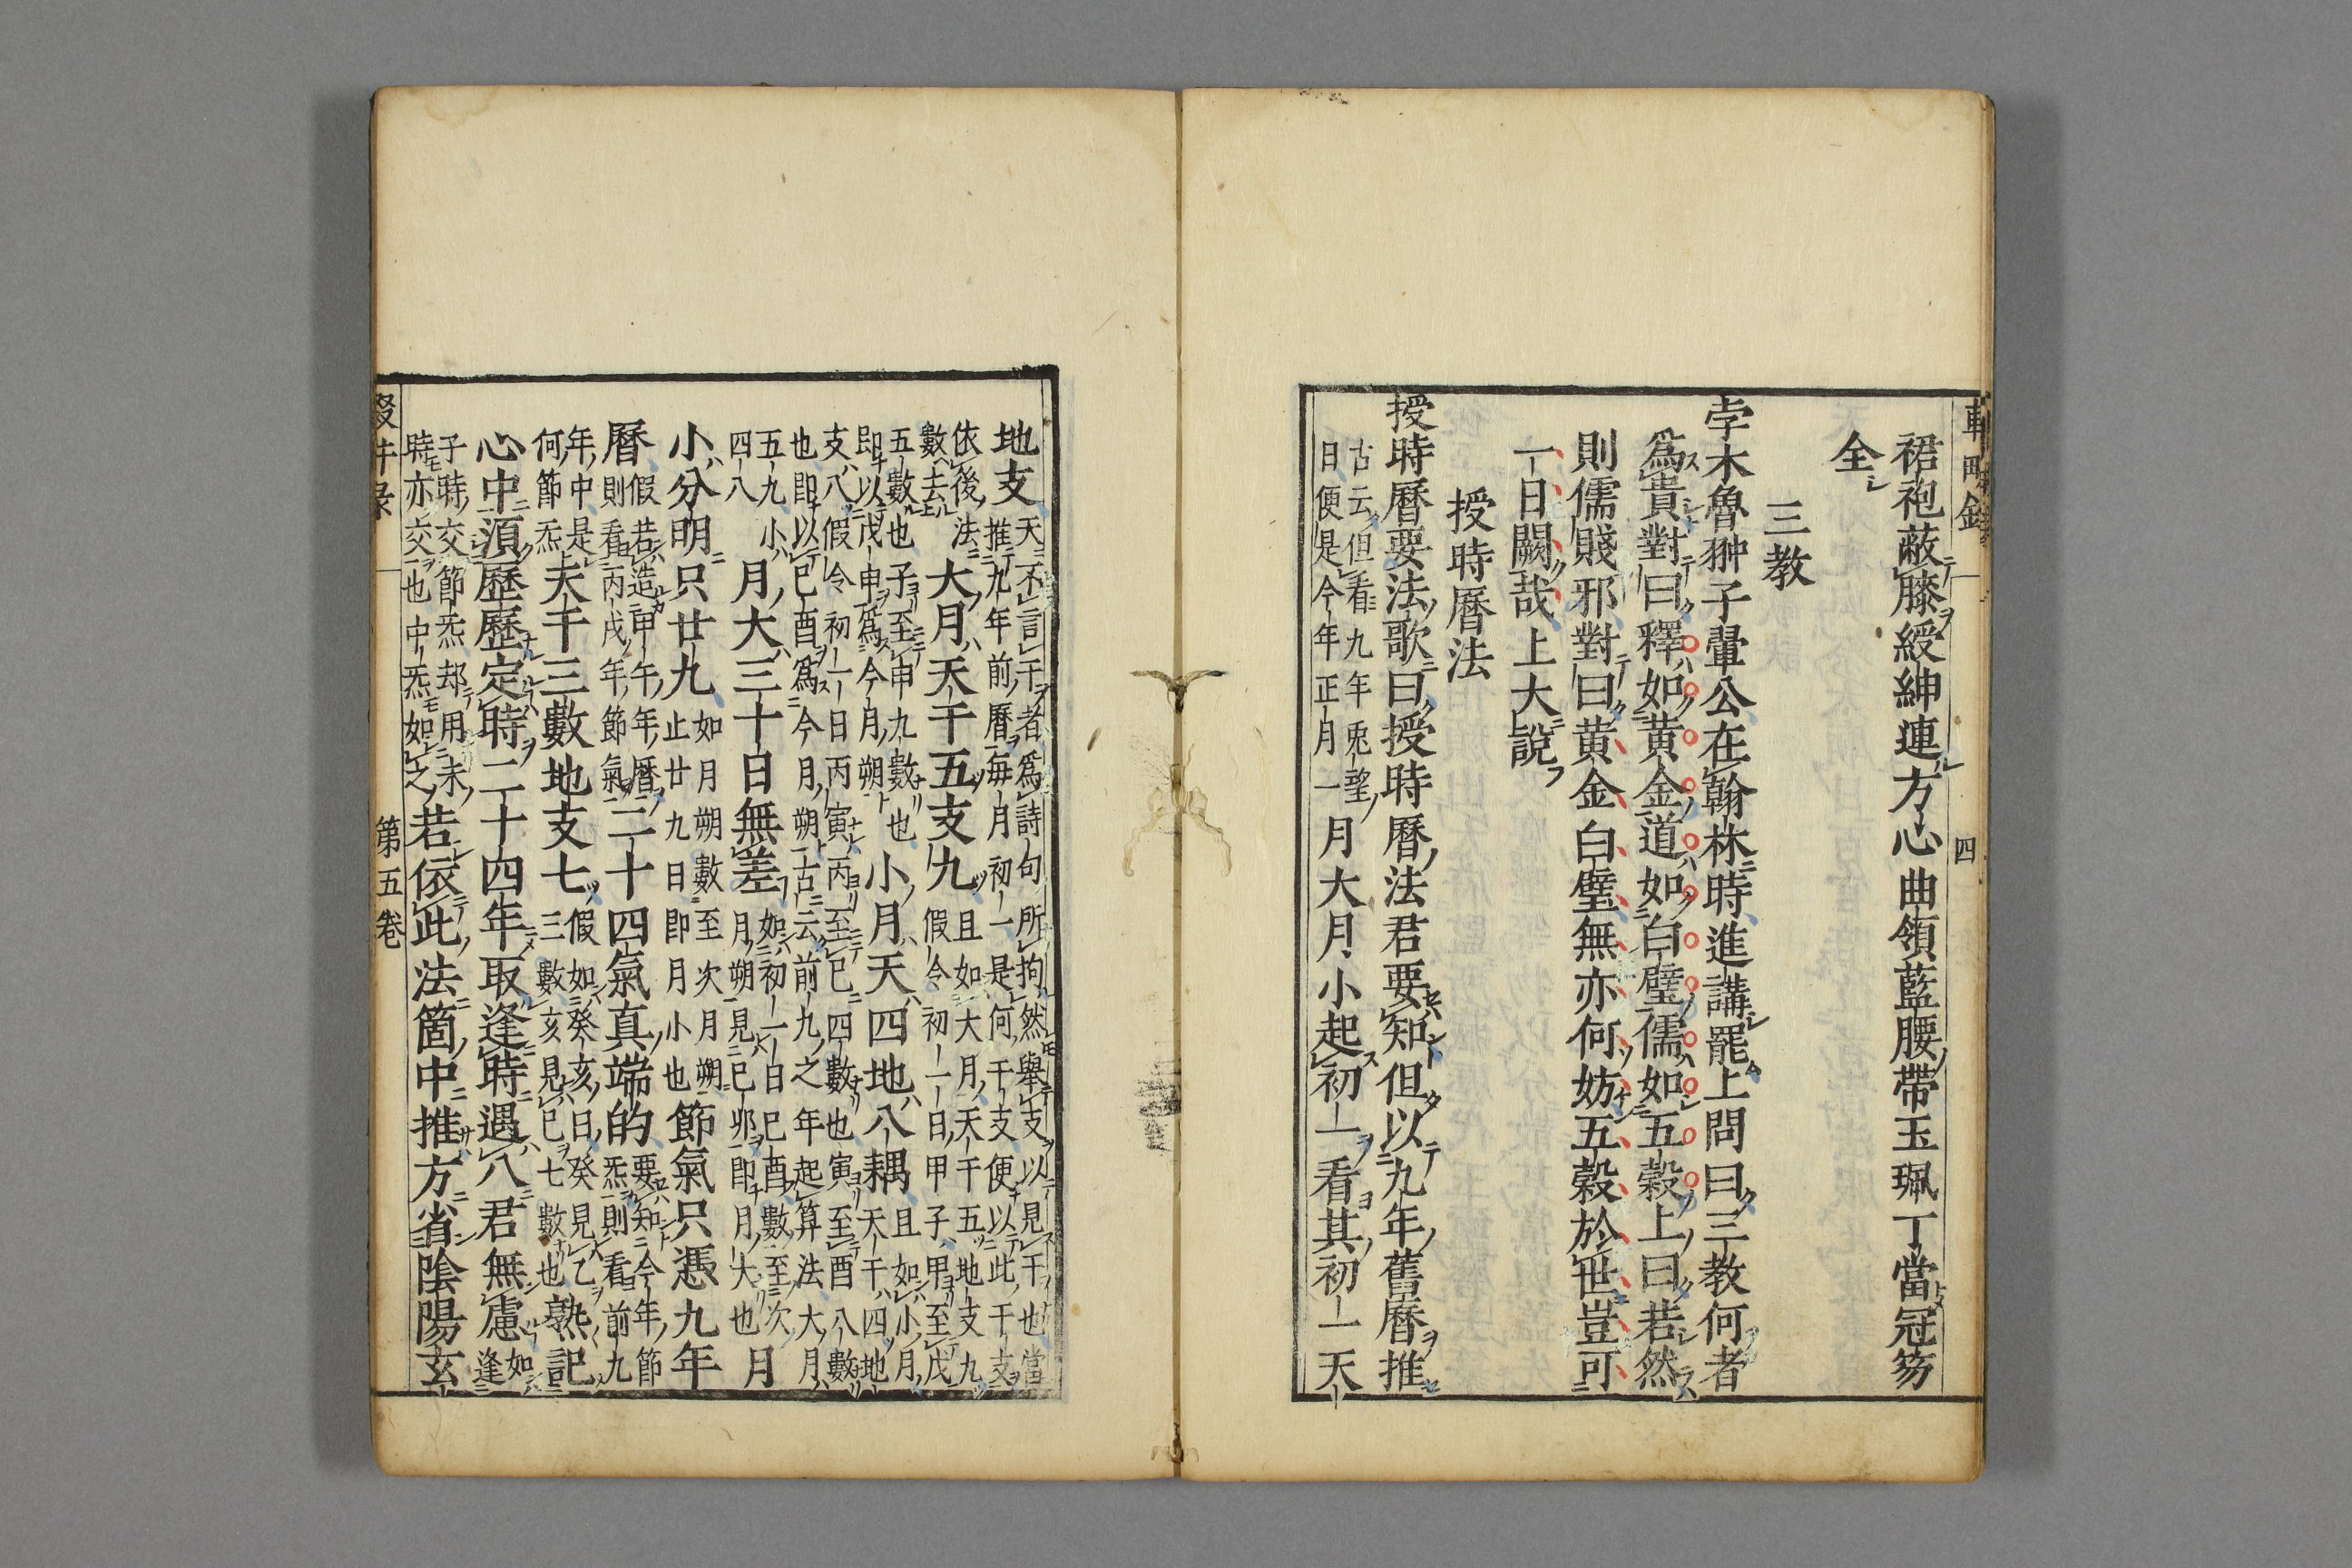 四
裙袍蔽膝綬紳連方心曲領藍腰帶玉珮丁當冠笏
全
三教
孛木魯翀子翬公在翰林時進講罷上問曰三教何者
爲貴對曰釋如黃金道如白璧儒如五穀上曰若然
則儒賤邪對曰黃金白璧無亦何妨五穀於世豈可
一日闕哉上大說
授時曆法
授時曆要法歌曰授時曆法君要知但以九年舊曆推
古云但看九年兎望
日便是今年正月一
月大月小起初一看其初一天
地支
天不言干者爲詩句所拘然舉支以見干也當
推九年前曆每月初一是何干支便以此干支
依後法
數去
大月天干五支九
且如大月天干五地支九
假令初一日甲子甲至戊
五數也子至申九數也
即以戊申爲今月朔
小月天四地八耦
且如小月
天干四地
支八假令初一日丙寅丙至巳四數也寅至酉八數
也即以巳酉爲今月朔古云前九之年起算法大月
五九小
四八
月大三十日無差
如初一日巳酉數至次
月朔見巳卯即月大也
月
小分明只廿九
如月朔數至次月朔
止廿九日即月小也
節氣只憑九年
曆
假若造甲午年曆
則看丙戌年節氣
二十四氣真端的
要知今年節
炁則看前九
年中是
何節炁
天干三數地支七
假如癸亥日癸見乙
三數亥見巳七數也
熟記
心中須歷歷定時二十四年取逢時遇八君無慮
如
逢
子時交節炁却用未
時亦交也中炁如之
若依此法箇中推方省陰陽玄
第五卷